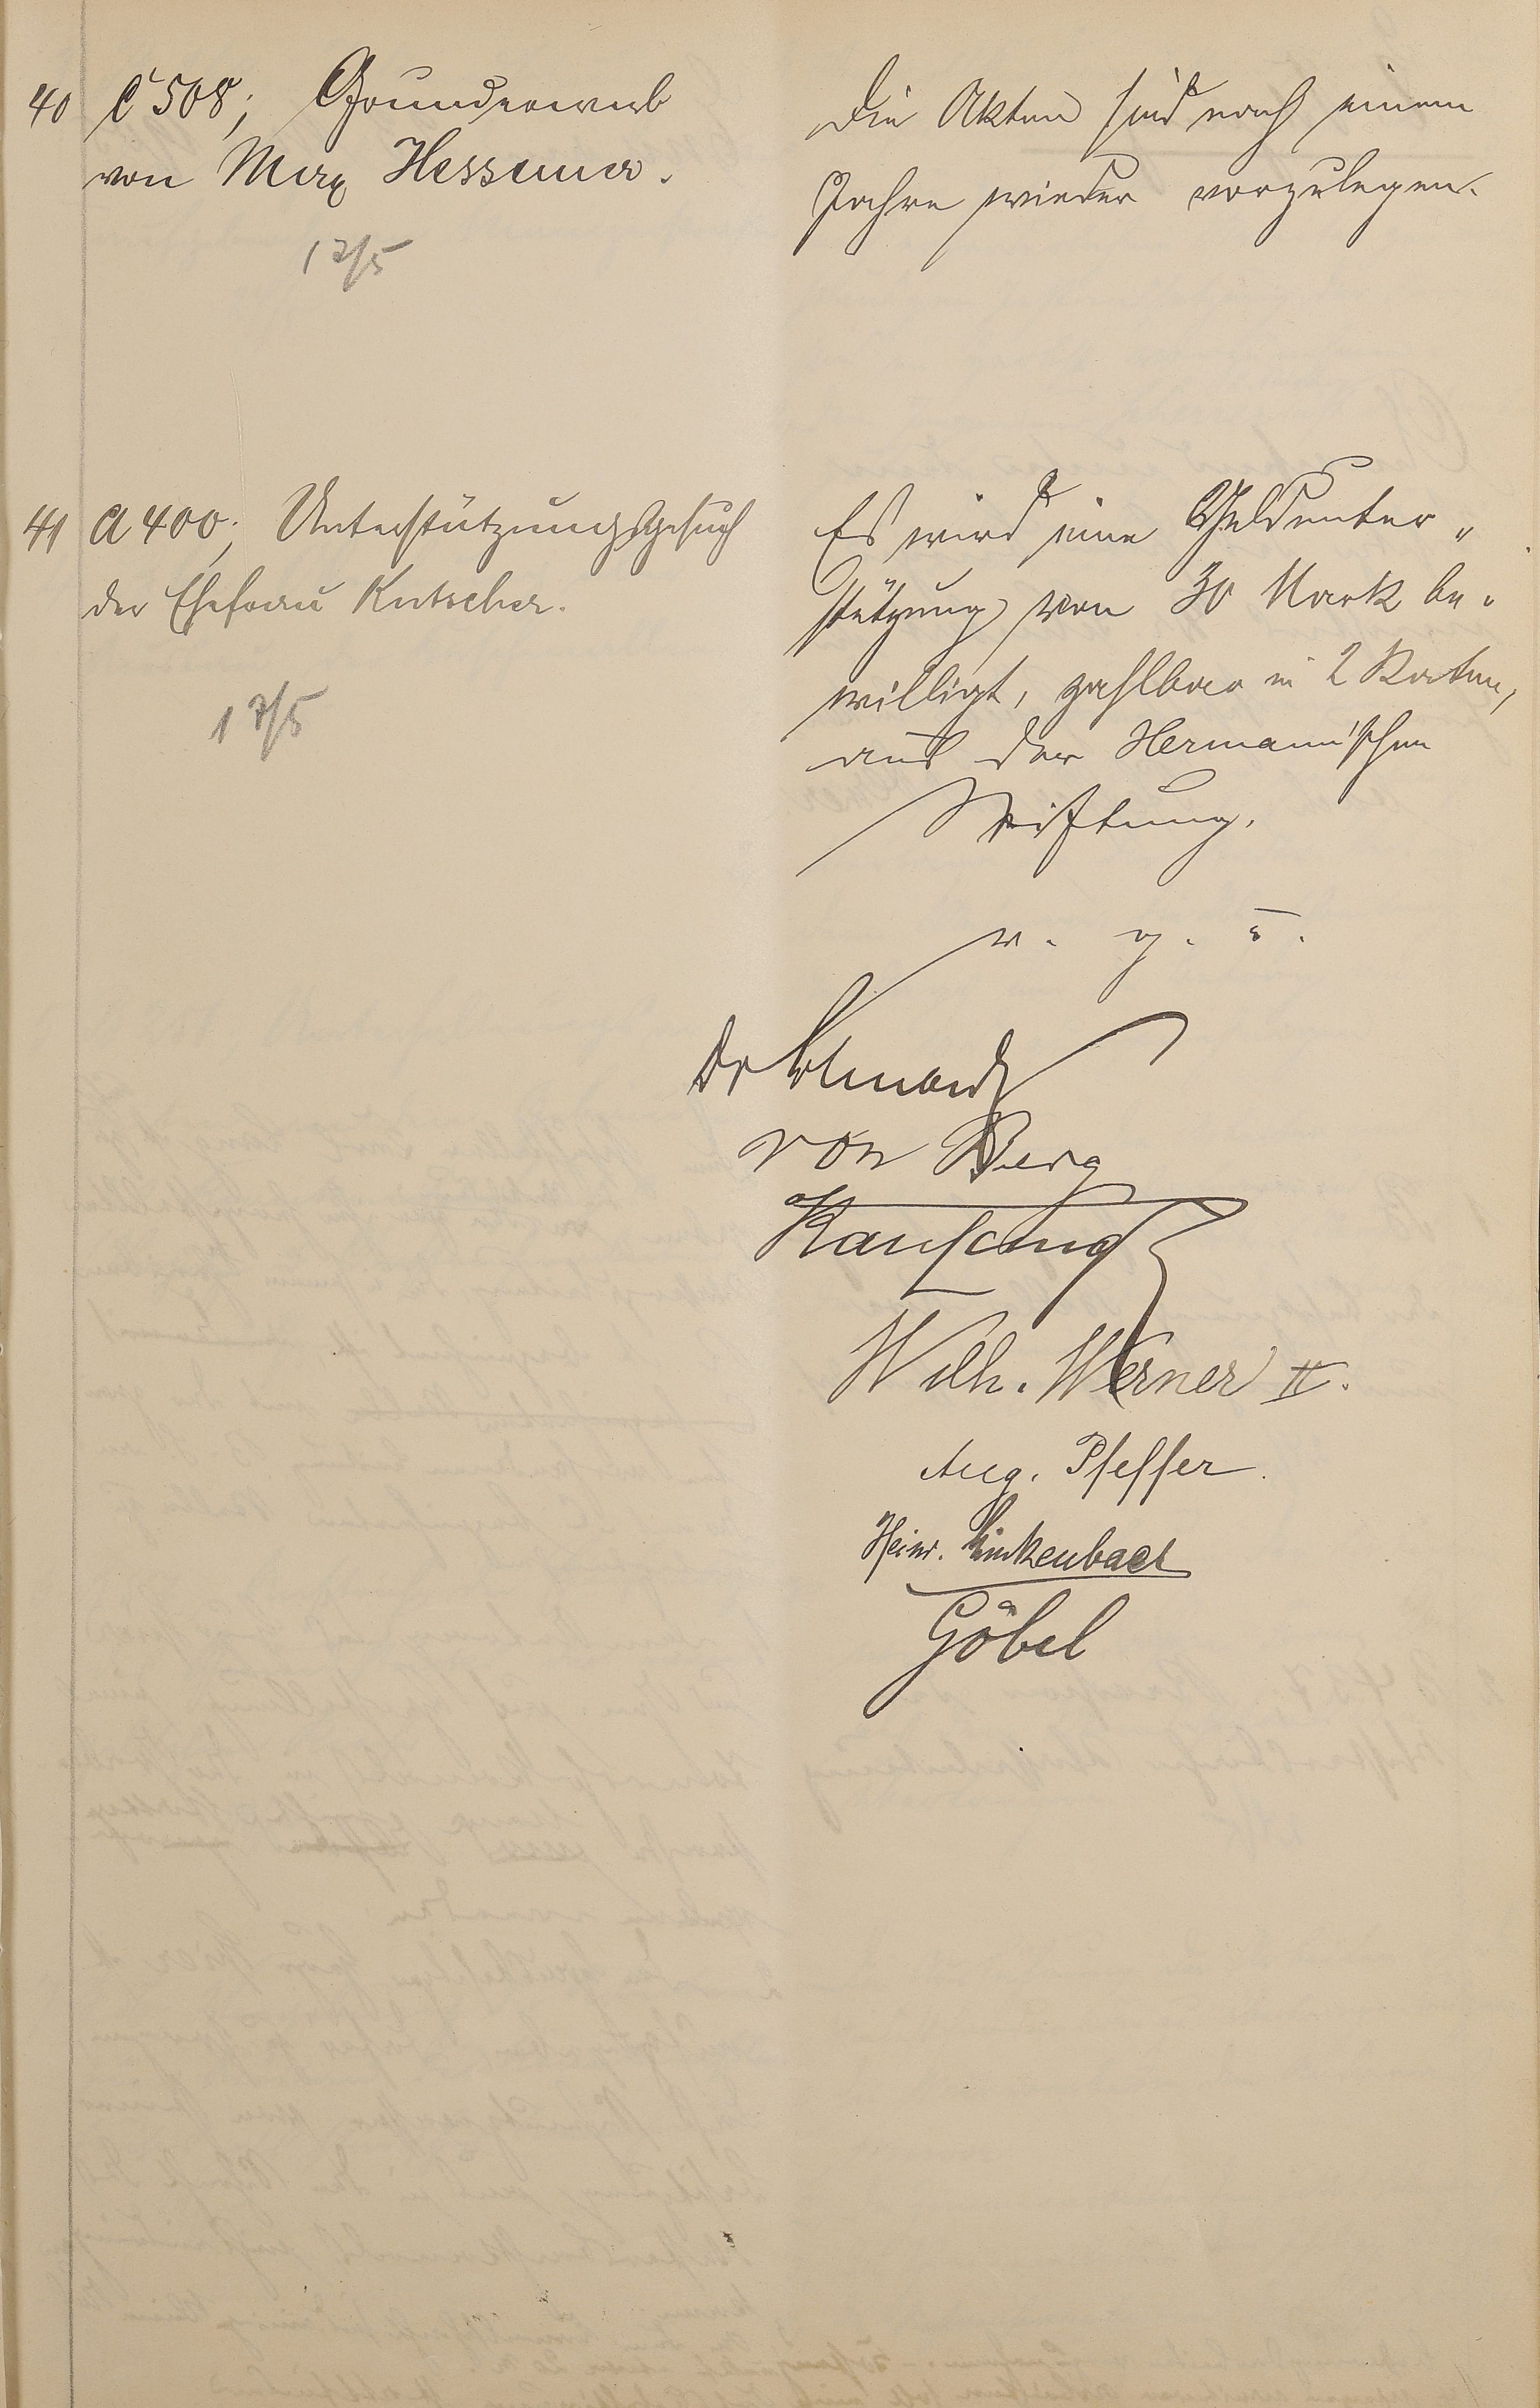 40 C 508; Grunderwerb
von Max Hessemer.
17/5
Die Akten sind nach einem
Jahre wieder vorzulegen.
41 A 400; Unterstützungsgesuch
der Ehefrau Kutscher.
17/5
Es wird eine Geldunter-
stützung von 30 Mark be-
willigt, zahlbar in 2 Raten,
aus der Hermann'schen
Stiftung.
v. g. u.
Dr
von Berg
Wilh. Werner II.
Aug. Pfeffer.
Heinr. Linkenbach
Göbel